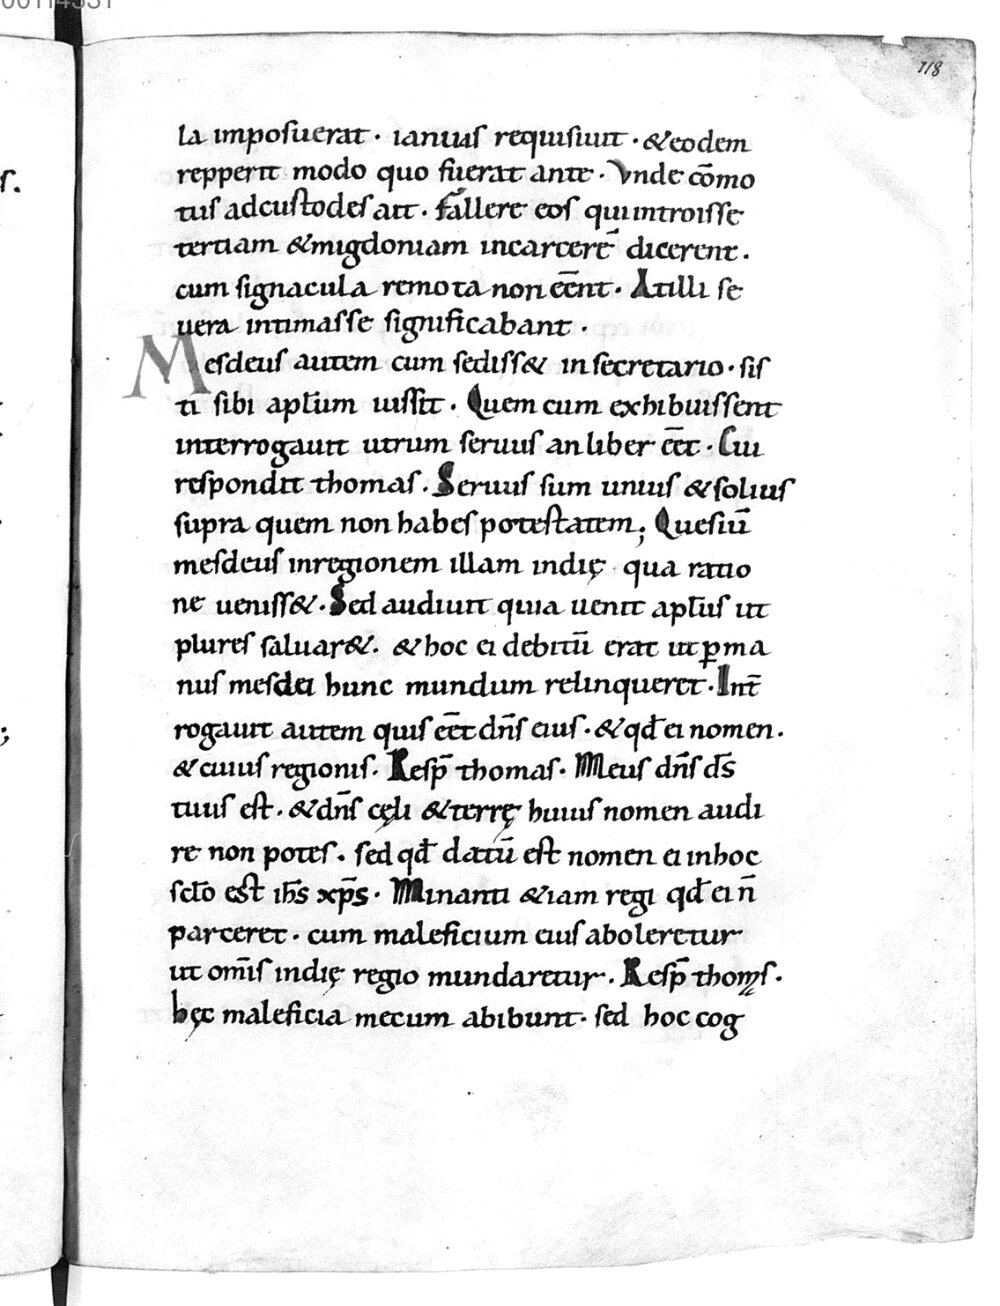 00114331
118
la imposuerat · ianuas requisiuit · &eodem
repperit modo quo fuerat ante · Vnde cōmo
tus adcustodes ait · fallere eos qui introisse
tertiam &migdoniam incarcerē dicerent ·
cum signacula remota non eēnt · Atilli se
uera intimasse significabant ·
Mesdeus autem cum sediss& in secretario · sis
ti sibi apl̄um iussit · Quem cum exhibuissent
interrogauit utrum seruus an liber eēt · Cui
respondit thomas · Seruus sum unius &solius
supra quem non habes potestatem; Quesiuī
mesdeus inregionem illam indię qua ratio
ne ueniss& · Sed audiuit quia uenit apl̄us ut
plures saluar& · &hoc ei debitū erat ut ꝑma
nus mesdei hunc mundum relinqueret · Int̄
rogauit autem quis eēt dn̄s eius · &qđ ei nomen ·
&cuius regionis · Resp̄ thomas · Meus dn̄s d̄s
tuus est · &dn̄s cęli &terrę huius nomen audi
re non potes · sed qđ datū est nomen ei inhoc
sclo est ih̄s xp̄s · Minanti &iam regi qđ ei n̄
parceret · cum maleficium eius aboleretur
ut om̄is indię regio mundaretur · Resp̄ thoms ·
hęc maleficia mecum abibunt · sed hoc cog